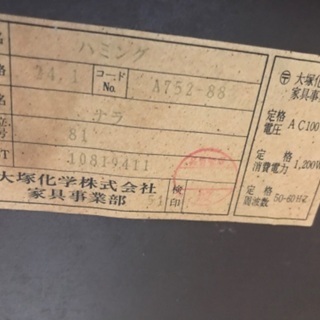 名 ハミング
格 24.1 コードNo. A752-88
名 ナラ
号 81
T 10819411
大塚化学株式会社
家具事業部
51
検印
〒 大塚化
家具事業
定格電圧 AC100
定格消費電力 1,200W
定格周波数 50-60HZ